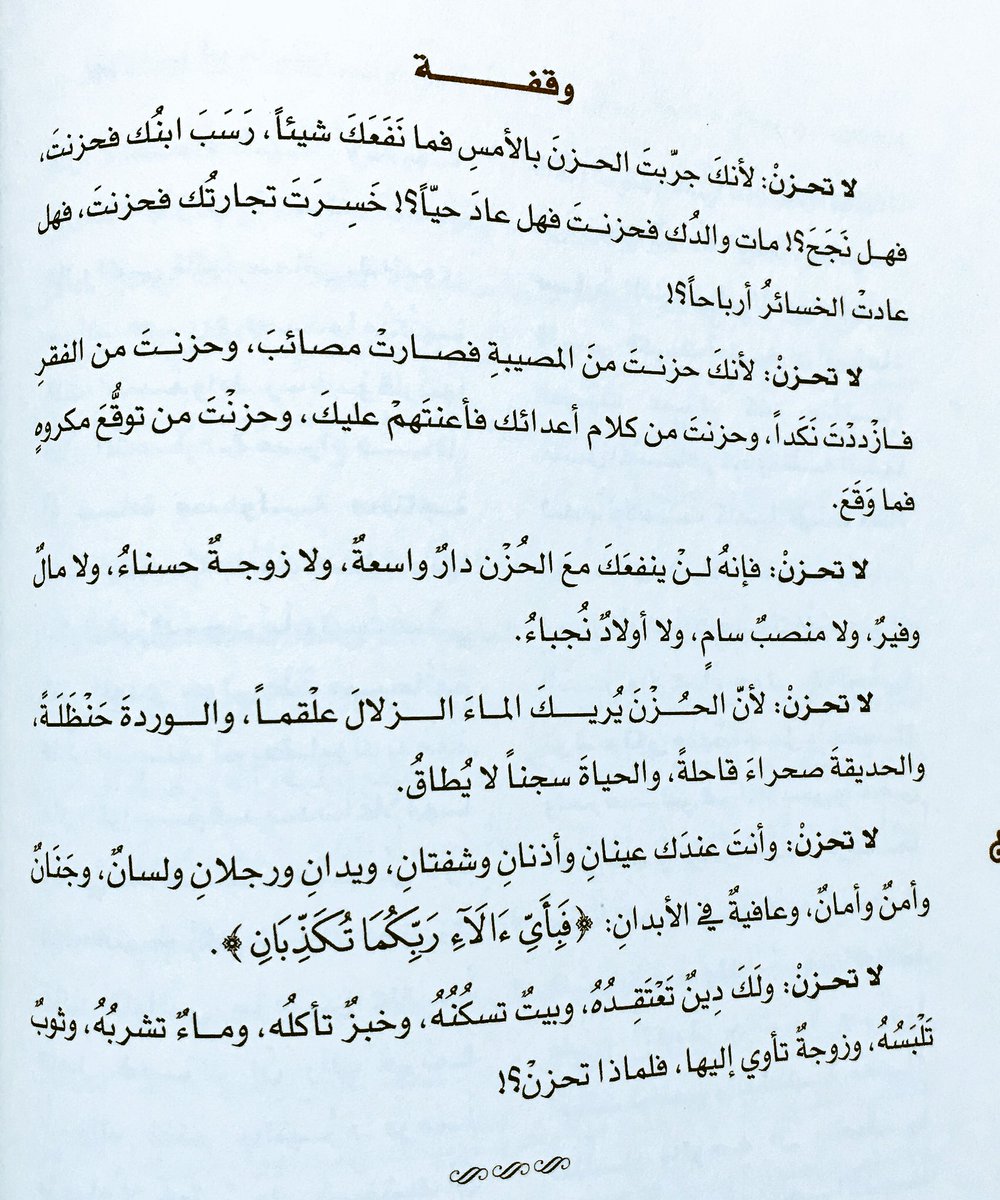 وقفـــــــــة
لا تحـزنْ: لأنكَ جرّبتَ الحـزنَ بالأمسِ فما نَفَعَكَ شيئاً، رَسَبَ ابنُك فحزنتَ،
فهـل نَجَحَ؟! مات والدُك فحزنـتَ فهل عادَ حيّاً؟! خَسِـرَتَ تجارتُك فحزنتَ، فهل
عادتْ الخسائرُ أرباحاً؟!
لا تحـزنْ: لأنكَ حزنـتَ منَ المصيبةِ فصـارتْ مصائبَ، وحزنـتَ من الفقرِ
فـازْددْتَ نَكَداً، وحزنتَ من كلام أعدائك فأعنتَهمْ عليكَ، وحزنْتَ من توقُّعَ مكروهٍ
فما وَقَعَ.
لا تحـزنْ: فإنهُ لـنْ ينفعَكَ معَ الحُزْن دارٌ واسعةٌ، ولا زوجـةٌ حسناءُ، ولا مالٌ
وفيرٌ، ولا منصبٌ سامٍ، ولا أولادٌ نُجباءُ.
لا تحـزنْ: لأنّ الحـُزْنَ يُريـــكَ المـاءَ الـــزلالَ علْقمـاً، والـــوردةَ حَنْظَلَةً،
والحديقةَ صحراءَ قاحلةً، والحياةَ سجناً لا يُطاقُ.
لا تحزنْ: وأنتَ عندَك عينانِ وأذنانِ وشفتانِ، ويدانِ ورجلانِ ولسانٌ، وجَنَانٌ
وأمنٌ وأمانٌ، وعافيةٌ في الأبدانِ: ﴿فَبِأَيِّ ءَالَآءِ رَبِّكُمَا تُكَذِّبَانِ﴾.
لا تحزنْ: ولَكَ دِينٌ تَعْتَقِـدُهُ، وبيتٌ تسكُنُهُ، وخبزٌ تأكلُه، ومـاءٌ تشربُهُ، وثوبٌ
تَلْبَسُهُ، وزوجةٌ تأوي إليها، فلماذا تحزنْ؟!